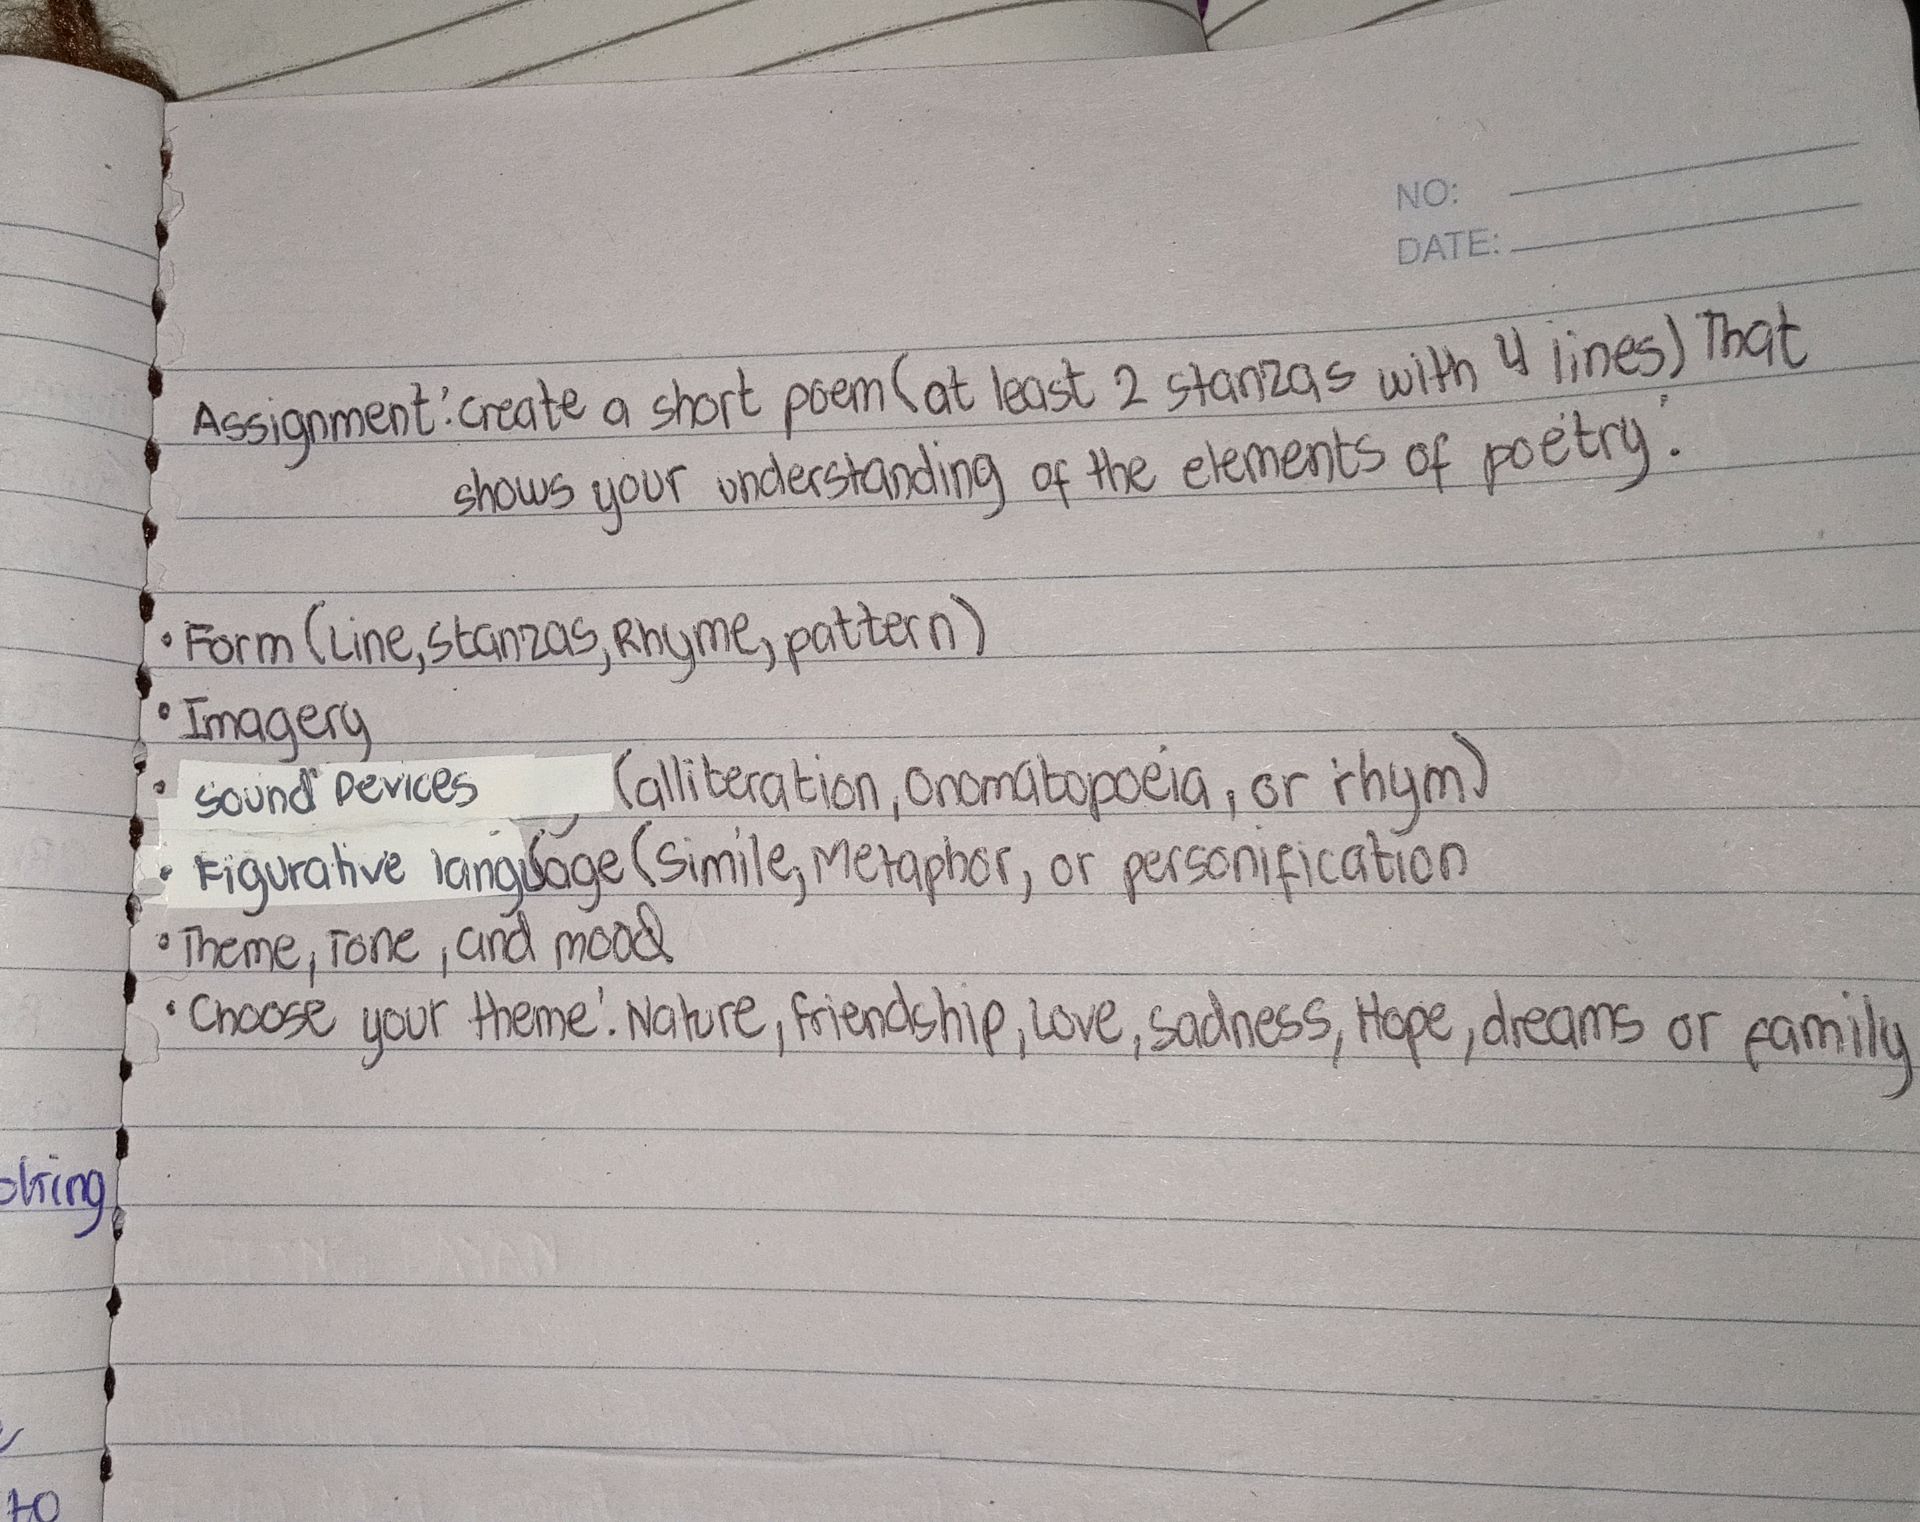 NO:
DATE:
Assignment: Create a short poem (at least 2 stanzas with 4 lines) That
shows your understanding of the elements of poetry:
• Form (Line, stanzas, Rhyme, pattern)
• Imagery
• Sound Devices (alliteration, onomatopoeia, or rhym)
• Figurative language (Simile, Metaphor, or personification
• Theme, Tone, and mood
• Choose your theme: Nature, friendship, Love, sadness, Hope, dreams or family
to